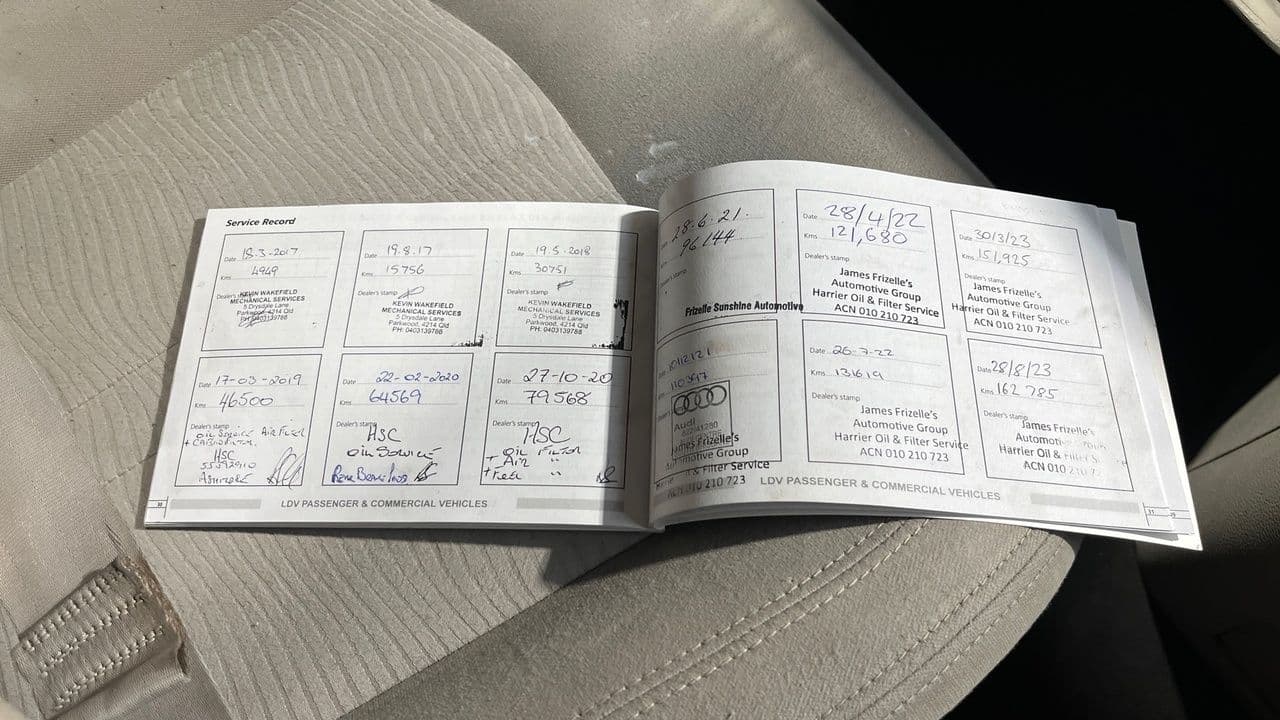 Service Record
Date 18.3-2017
Kms 4949
Dealer's stamp
KEVIN WAKEFIELD
MECHANICAL SERVICES
5 Drysdale Lane
Parkwood, 4214 Qld
PH: 0403139788
Date 19.8.17
Kms 15756
Dealer's stamp
KEVIN WAKEFIELD
MECHANICAL SERVICES
5 Drysdale Lane
Parkwood, 4214 Qld
PH: 0403139788
Date 19.5.2018
Kms 30751
Dealer's stamp
KEVIN WAKEFIELD
MECHANICAL SERVICES
5 Drysdale Lane
Parkwood, 4214 Qld
PH: 0403139788
Date 17-03-2019
Kms 46500
Dealer's stamp
OIL SERVICE AIR FUEL
HSC
Date 22-02-2020
Kms 64569
Dealer's stamp
HSC
OIL SERVICE
Date 27-10-20
Kms 79568
Dealer's stamp
HSC
OIL FILTER
+ AIR "
+ FUEL "
30
LDV PASSENGER & COMMERCIAL VEHICLES
28.6.21.
96144
stamp
Frizelle Sunshine Automotive
Date 28/4/22
Kms 121,680
Dealer's stamp
James Frizelle's
Automotive Group
Harrier Oil & Filter Service
ACN 010 210 723
Date 30/3/23
Kms 151,925
Dealer's stamp
James Frizelle's
Automotive Group
Harrier Oil & Filter Service
ACN 010 210 723
110397
Audi
James Frizelle's
Automotive Group
& Filter Service
ACN 010 210 723
Date 26-7-22
Kms 131619
Dealer's stamp
James Frizelle's
Automotive Group
Harrier Oil & Filter Service
ACN 010 210 723
Date 28/8/23
Kms 162 785
Dealer's stamp
James Frizelle's
Harrier Oil & Filter
ACN 010 210 7
LDV PASSENGER & COMMERCIAL VEHICLES
31